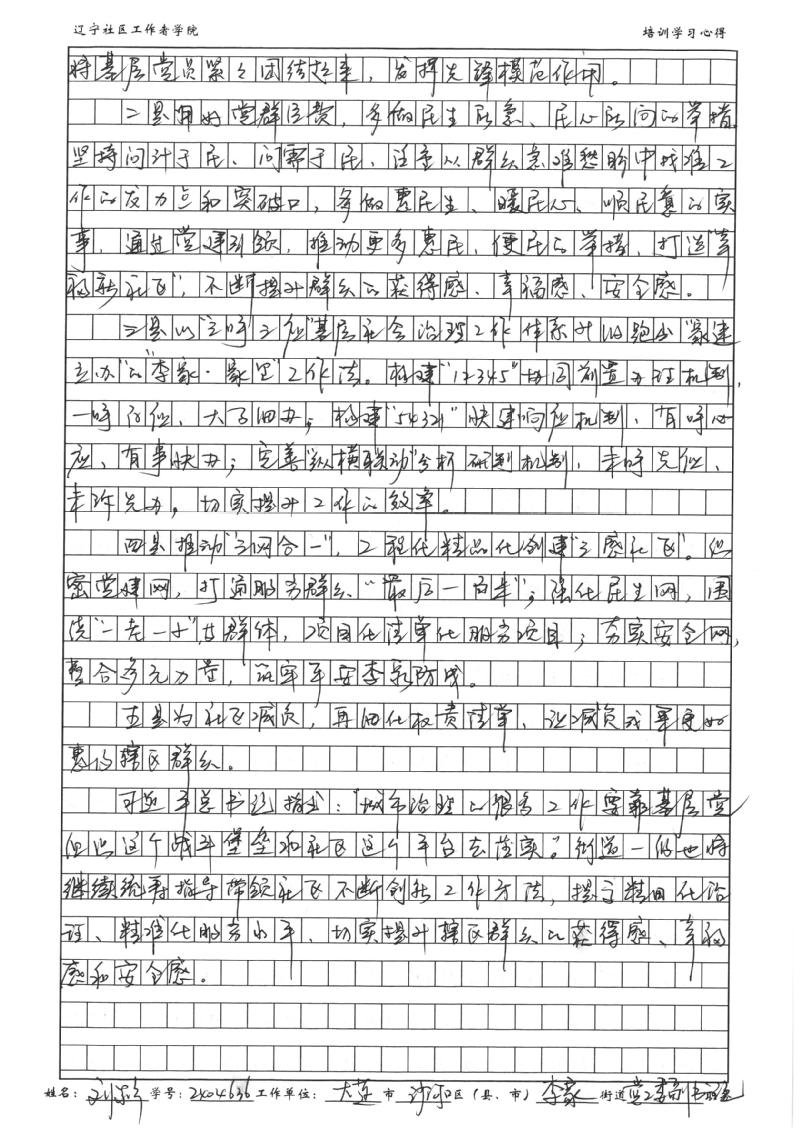 辽宁社区工作者学院 培训学习心得
将基层党员紧紧团结起来，发挥先锋模范作用。
二是用好党群经费，多做民生所急、民心所向的举措，
坚持问计于民、问需于民，注重从群众急难愁盼中找准工
作的发力点和突破口，多做惠民生、暖民心、顺民意的实
事，通过党建引领，推动更多惠民、便民的举措，打造"幸
福新社区"，不断提升群众的获得感、幸福感、安全感。
三是以"三时三应"基层社会治理工作体系升级跑出"家建
立办"的"李家·家里"工作法。构建"12345"协同前置办理机制，
一时即应、大事细办；构建"54321"快速响应机制，有时必
应、有事快办；完善"纵横联动"分析研判机制，未时先应、
未诉先办，切实提升工作的效率。
四是推动"三网合一"，工程化精品化创建"三感社区"。织
密党建网，打通服务群众"最后一百米"；强化民生网，围
绕"一老一少"等群体，项目化清单化服务项目；夯实安全网，
整合多元力量，筑牢平安李家防线。
五是为社区减负，再细化权责清单，让减负成果更好
惠及辖区群众。
习近平总书记指出："城市治理的很多工作要靠基层党
组织这个战斗堡垒和社区这个平台去落实。"街道一级也将
继续统筹指导带领社区不断创新工作方法，提高精细化治
理、精准化服务水平，切实提升辖区群众的获得感、幸福
感和安全感。
姓名： 学号：2404636 工作单位：大连市 沙河口区（县、市） 李家 街道 党工委副书记